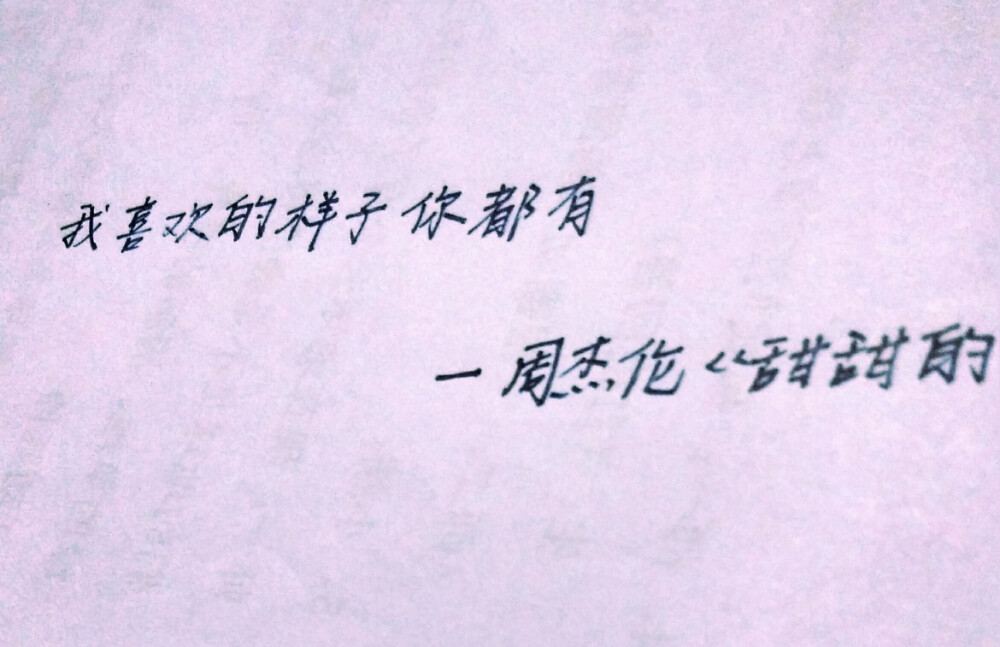 我喜欢的样子你都有
—周杰伦《甜甜的